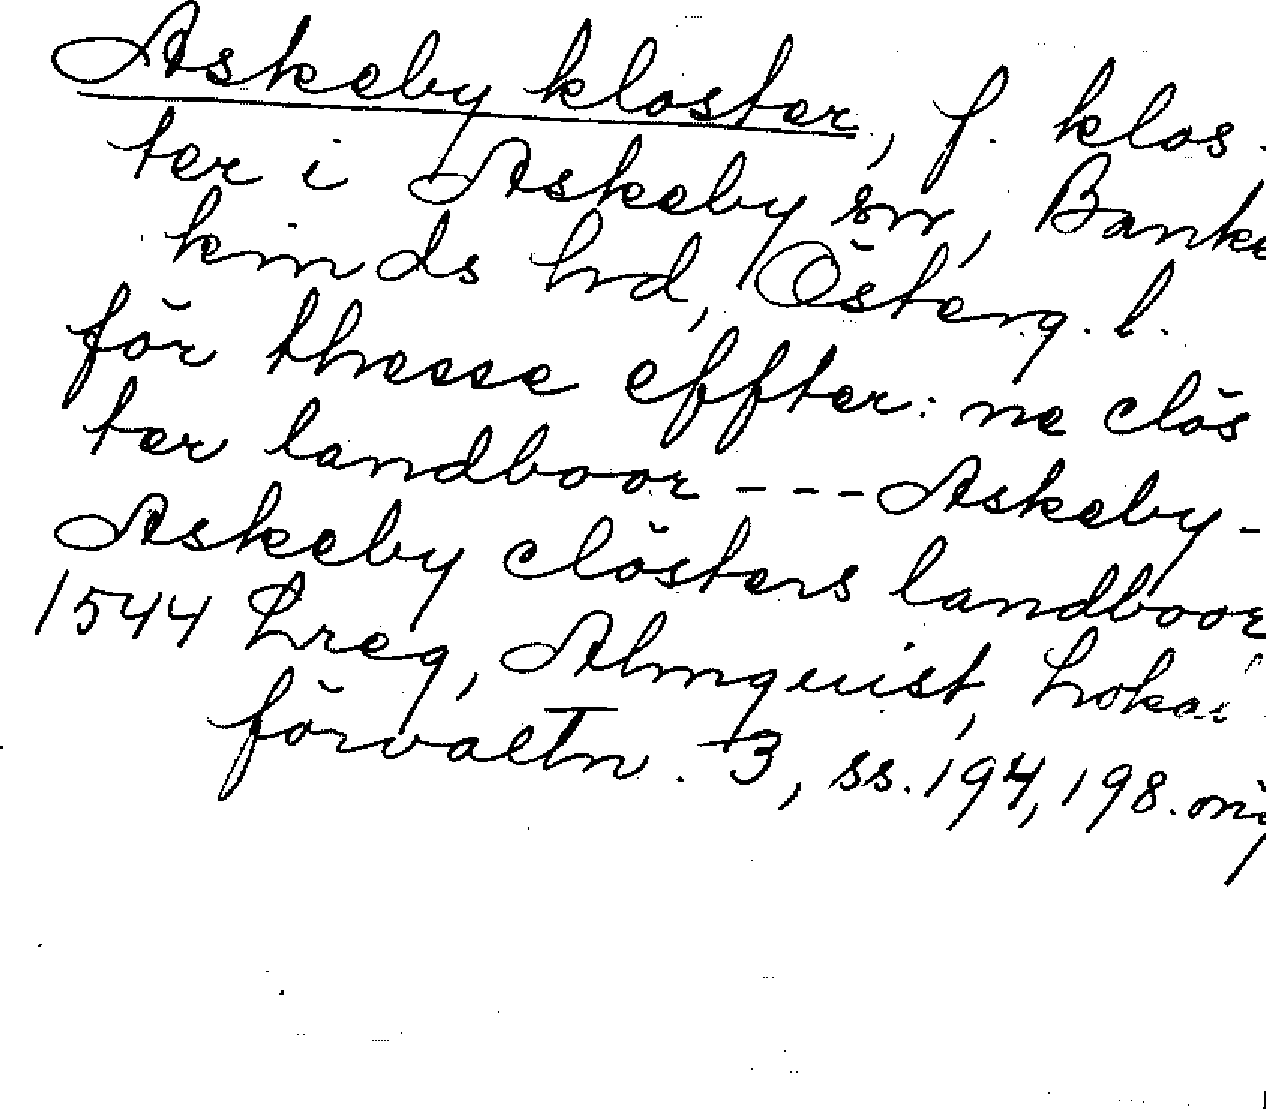 Askeby kloster, f. klos-
ter i Askeby sn, Banke
kinds hd, Österg. l.
för thesse effter: ne clös
ter landboor --- Askeby-
Askeby clösters landboor
1544 Lreg, Almquist, Lokal
förvaltn. 3, ss. 194, 198. orig